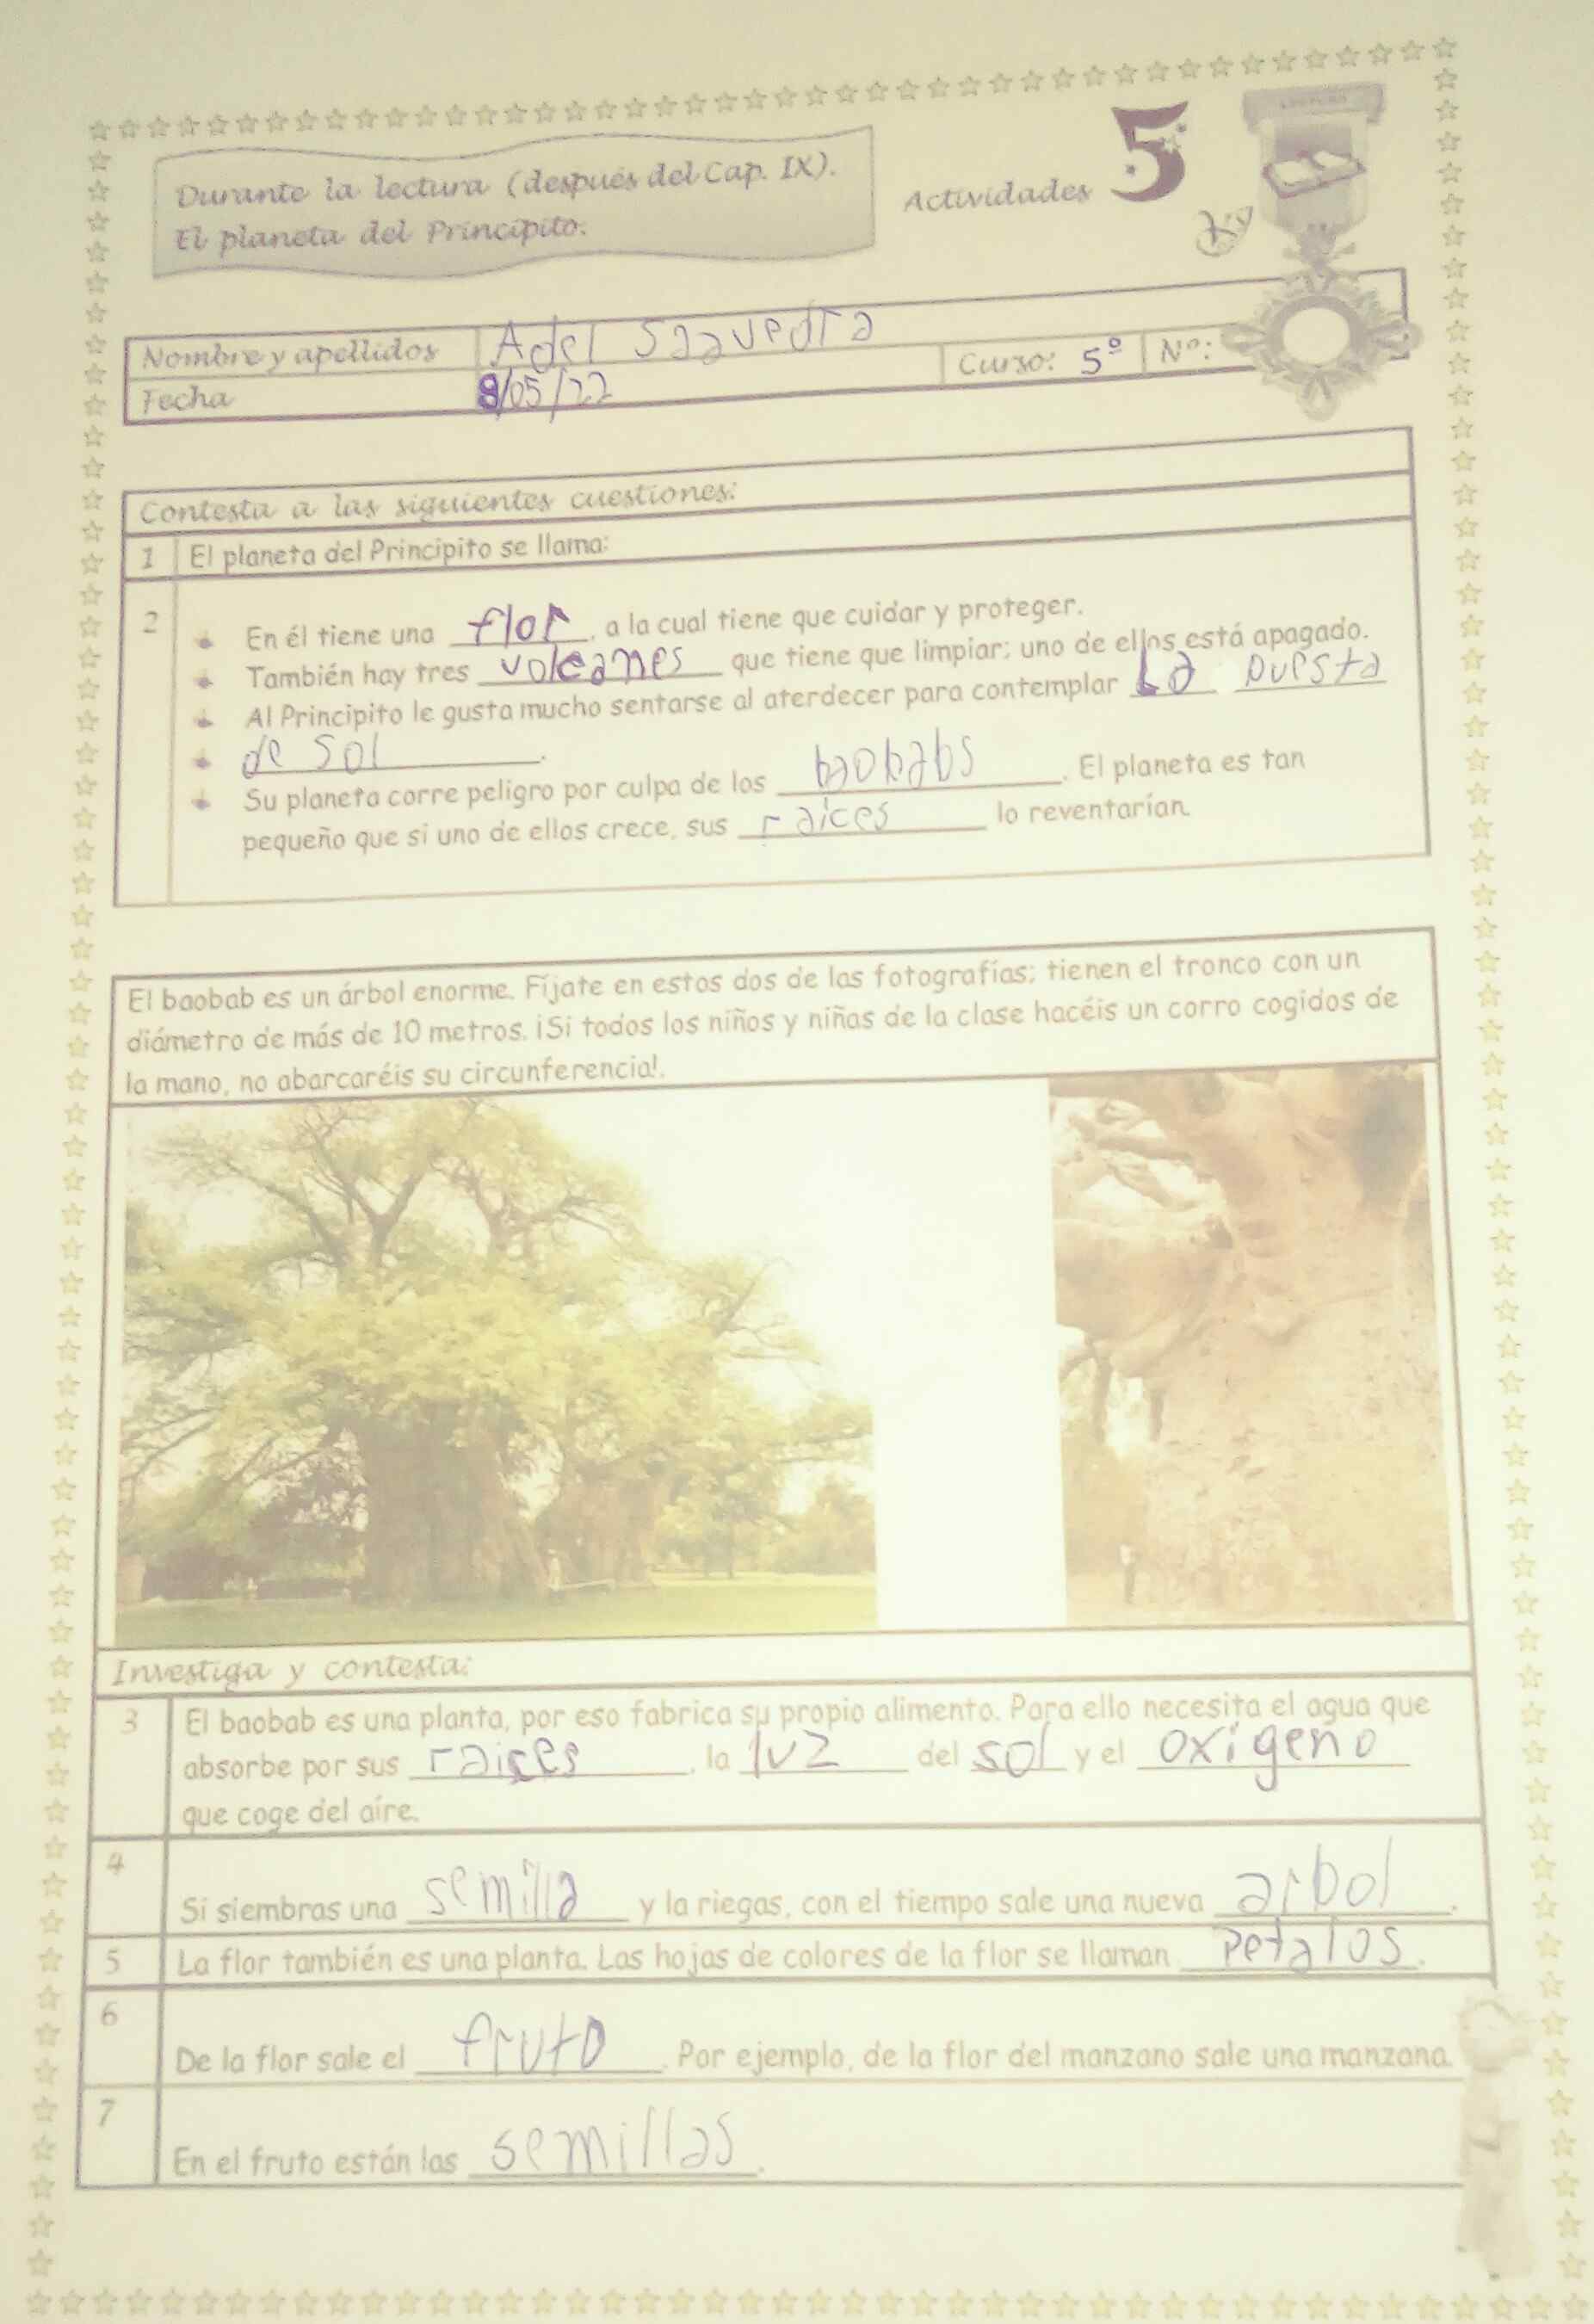 Durante la lectura (después del Cap. IX).
El planeta del Principito.
Actividades 5
LECTURA
Nombre y apellidos Adel Saavedra
Fecha 8/05/22 Curso: 5º Nº:
Contesta a las siguientes cuestiones:
1 El planeta del Principito se llama:
2
En él tiene una flor, a la cual tiene que cuidar y proteger.
También hay tres volcanes que tiene que limpiar; uno de ellos está apagado.
Al Principito le gusta mucho sentarse al aterdecer para contemplar La puesta
de sol.
Su planeta corre peligro por culpa de los baobabs. El planeta es tan
pequeño que si uno de ellos crece, sus raices lo reventarían.
El baobab es un árbol enorme. Fíjate en estos dos de las fotografías; tienen el tronco con un
diámetro de más de 10 metros. ¡Si todos los niños y niñas de la clase hacéis un corro cogidos de
la mano, no abarcaréis su circunferencia!.
Investiga y contesta:
3 El baobab es una planta, por eso fabrica su propio alimento. Para ello necesita el agua que
absorbe por sus raices, la luz del sol y el oxigeno
que coge del aire.
4
Si siembras una semilla y la riegas, con el tiempo sale una nueva arbol.
5 La flor también es una planta. Las hojas de colores de la flor se llaman petalos.
6
De la flor sale el fruto. Por ejemplo, de la flor del manzano sale una manzana.
7
En el fruto están las semillas.